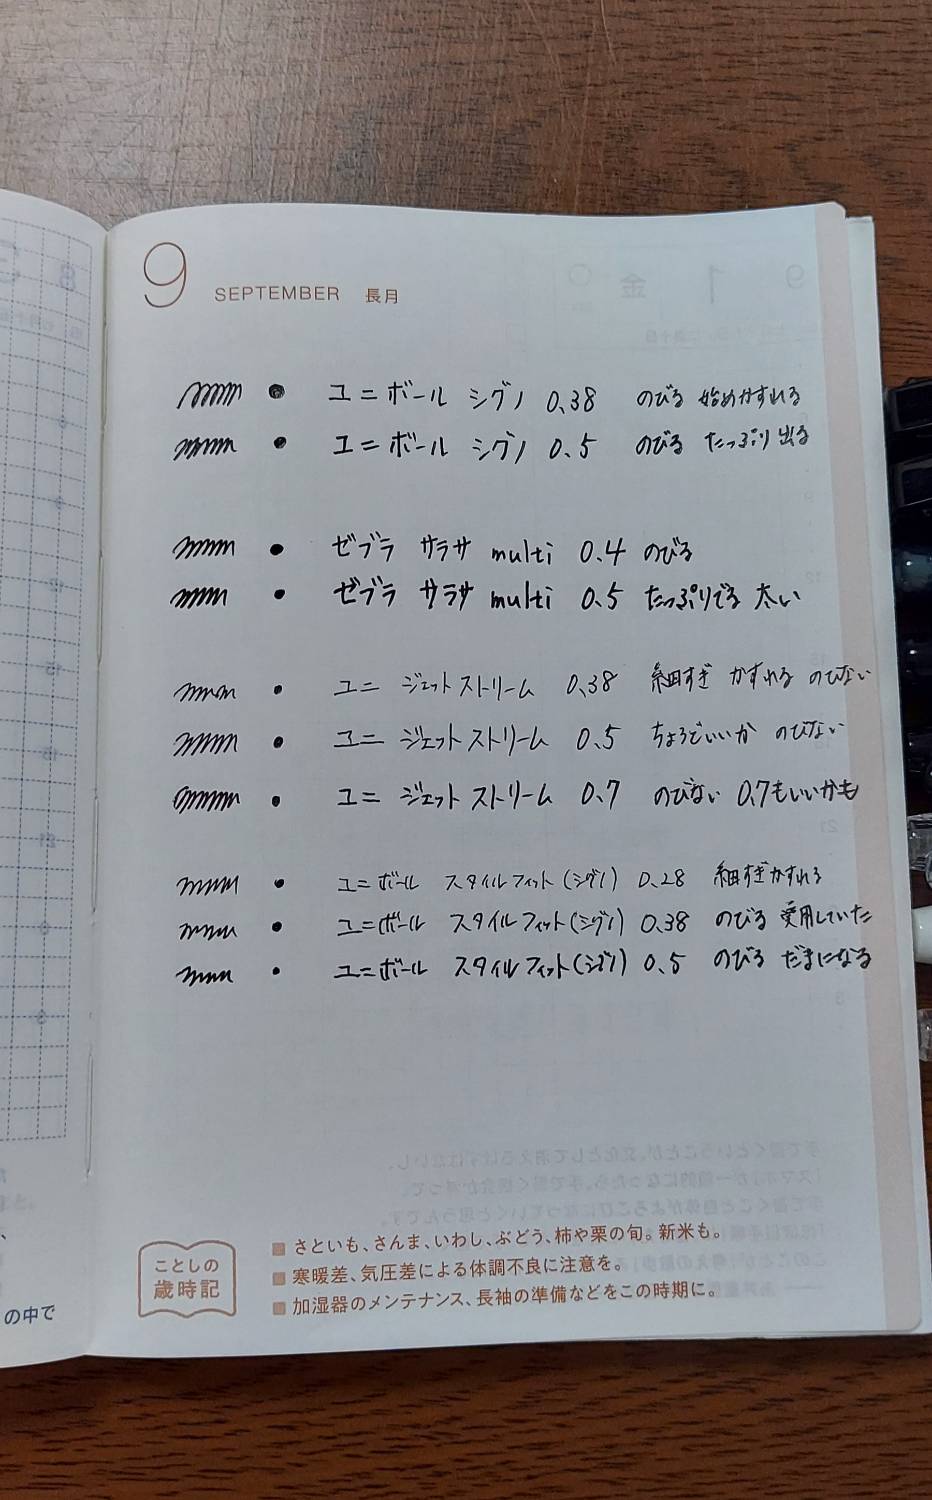 9 SEPTEMBER 長月
ユニボール シグノ 0.38 のびる 始めかすれる
ユニボール シグノ 0.5 のびる たっぷり出る
ゼブラ サラサ multi 0.4 のびる
ゼブラ サラサ multi 0.5 たっぷりでる 太い
ユニ ジェットストリーム 0.38 細すぎ かすれる のびない
ユニ ジェットストリーム 0.5 ちょうどいいか のびない
ユニ ジェットストリーム 0.7 のびない 0.7もいいかも
ユニボール スタイルフィット(シグノ) 0.28 細すぎかすれる
ユニボール スタイルフィット(シグノ) 0.38 のびる 愛用していた
ユニボール スタイルフィット(シグノ) 0.5 のびる だまになる
ことしの
歳時記
さといも、さんま、いわし、ぶどう、柿や栗の旬。新米も。
寒暖差、気圧差による体調不良に注意を。
加湿器のメンテナンス、長袖の準備などをこの時期に。
の中で